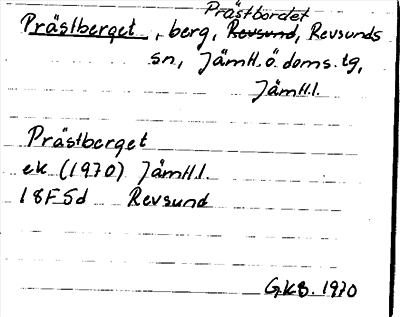 Prästbordet
Prästberget, berg, Revsund, Revsunds
sn, Jämtl. ö. doms. tg,
Jämtl.l.
Prästberget
ek (1970) Jämtl.l.
18F5d Revsund
GKB. 1970